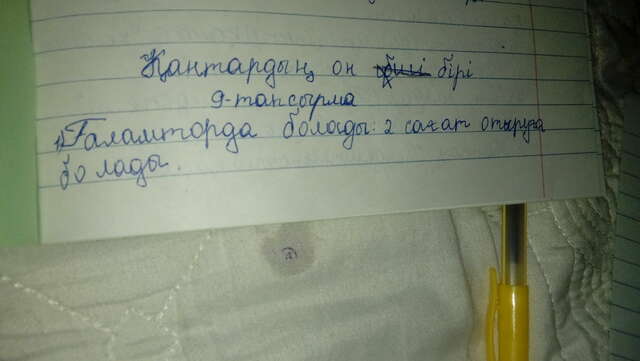 Қантардың он бірі
9-тапсырма
1) Ғаламторда болады: 2 сағат отыруға
болады.